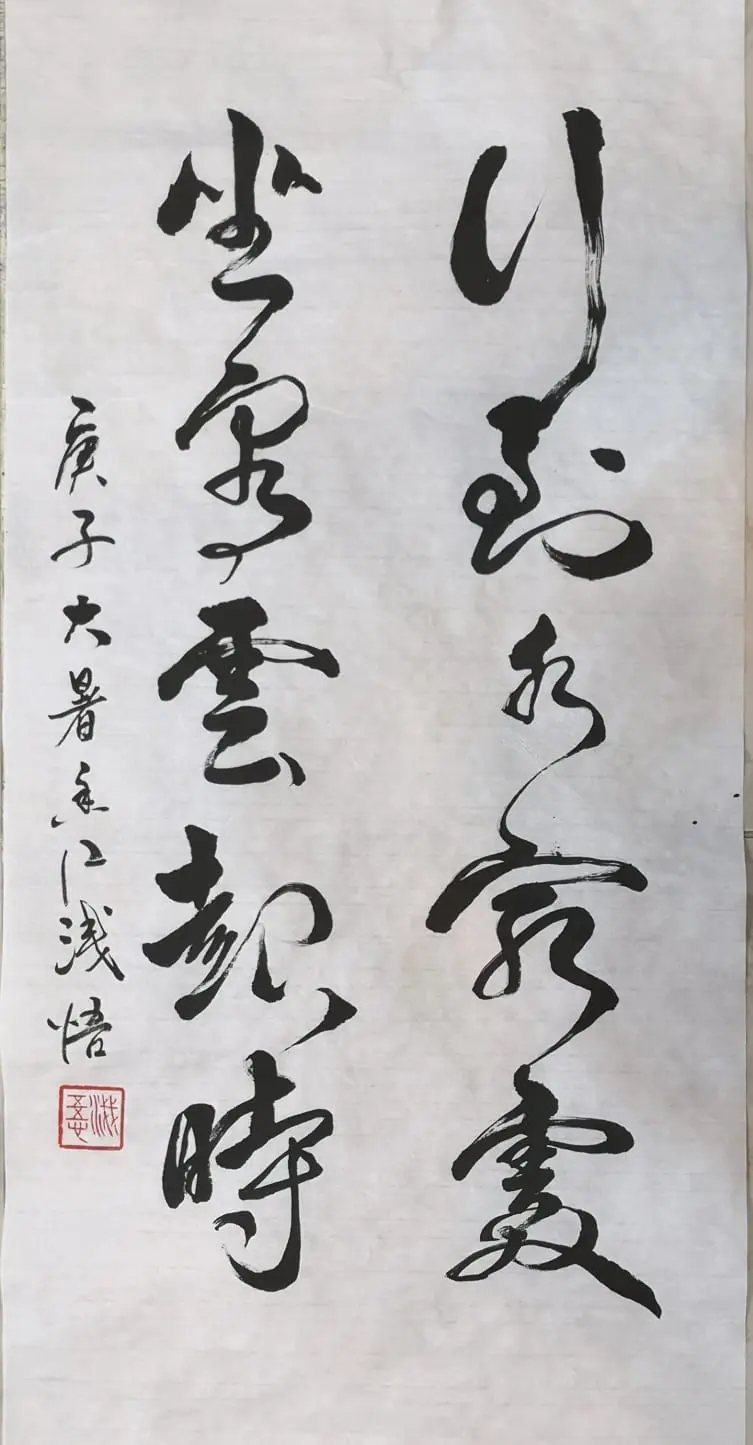 行到水窮處
坐看雲起時
庚子大暑香江浅悟